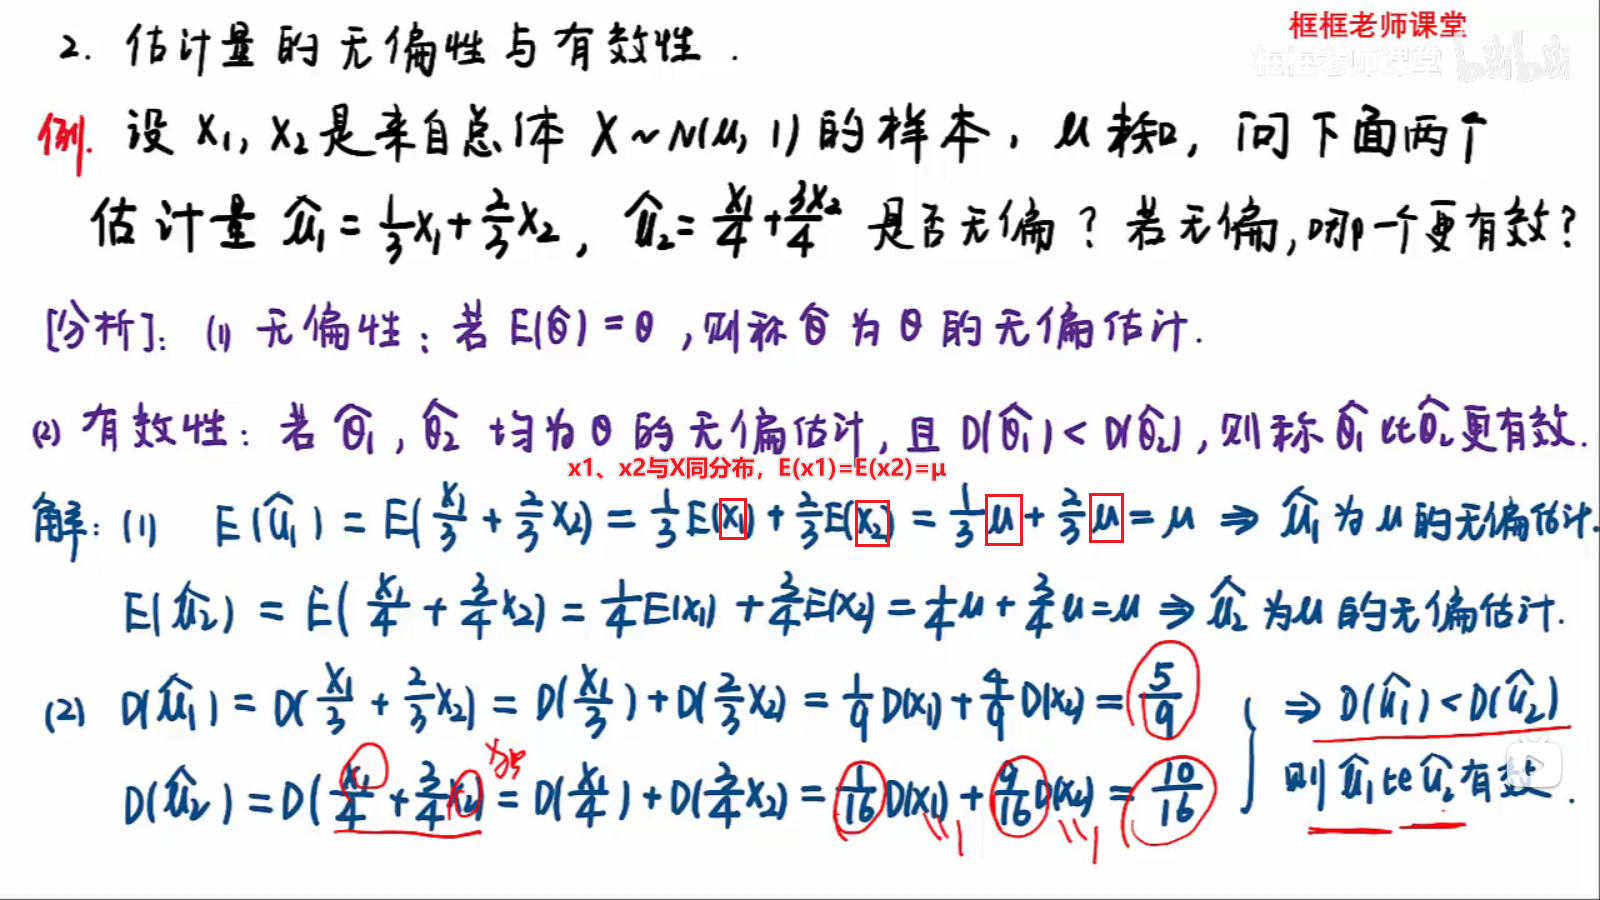 框框老师课堂
框框老师课堂 bilibili
2. 估计量的无偏性与有效性.
例. 设 X₁, X₂是来自总体 X~N(μ, 1) 的样本, μ未知, 问下面两个
估计量 μ̂₁ = 1/3 X₁ + 2/3 X₂, μ̂₂ = X₁/4 + 3X₂/4 是否无偏? 若无偏, 哪一个更有效?
[分析]: (1) 无偏性: 若 E(θ̂) = θ, 则称 θ̂ 为 θ 的无偏估计.
(2) 有效性: 若 θ̂₁, θ̂₂ 均为 θ 的无偏估计, 且 D(θ̂₁) < D(θ̂₂), 则称 θ̂₁ 比 θ̂₂ 更有效.
x1、x2与X同分布，E(x1)=E(x2)=μ
解: (1) E(μ̂₁) = E(X₁/3 + 2/3 X₂) = 1/3 E(X₁) + 2/3 E(X₂) = 1/3 μ + 2/3 μ = μ ⇒ μ̂₁ 为 μ 的无偏估计.
E(μ̂₂) = E(X₁/4 + 3/4 X₂) = 1/4 E(X₁) + 3/4 E(X₂) = 1/4 μ + 3/4 μ = μ ⇒ μ̂₂ 为 μ 的无偏估计.
(2) D(μ̂₁) = D(X₁/3 + 2/3 X₂) = D(X₁/3) + D(2/3 X₂) = 1/9 D(X₁) + 4/9 D(X₂) = 5/9 } ⇒ D(μ̂₁) < D(μ̂₂)
D(μ̂₂) = D(X₁/4 + 3/4 X₂) = D(X₁/4) + D(3/4 X₂) = 1/16 D(X₁) + 9/16 D(X₂) = 10/16 则 μ̂₁ 比 μ̂₂ 有效.
1 1